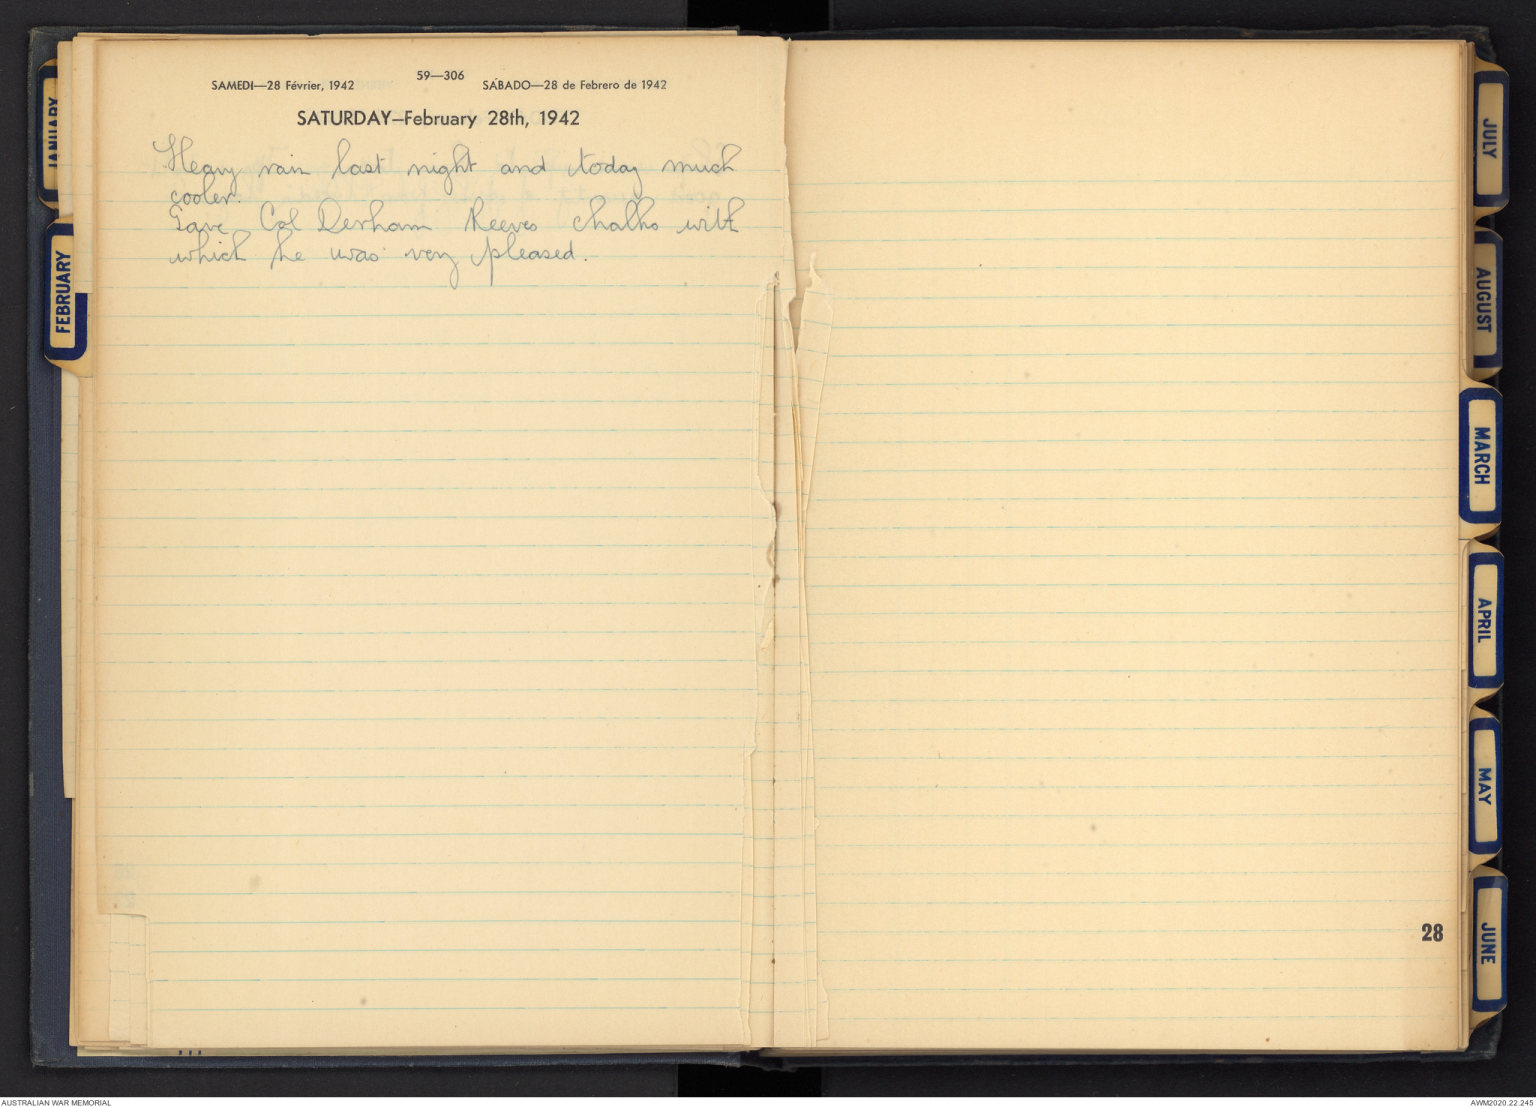 SAMEDI—28 Février, 1942
59—306
SÁBADO—28 de Febrero de 1942
SATURDAY—February 28th, 1942
Heavy rain last night and today much
cooler.
Gave Col Derham Reeves chalks with
which he was very pleased.
JANUARY
FEBRUARY
JULY
AUGUST
MARCH
APRIL
MAY
JUNE
28
AUSTRALIAN WAR MEMORIAL
AWM2020.22.245